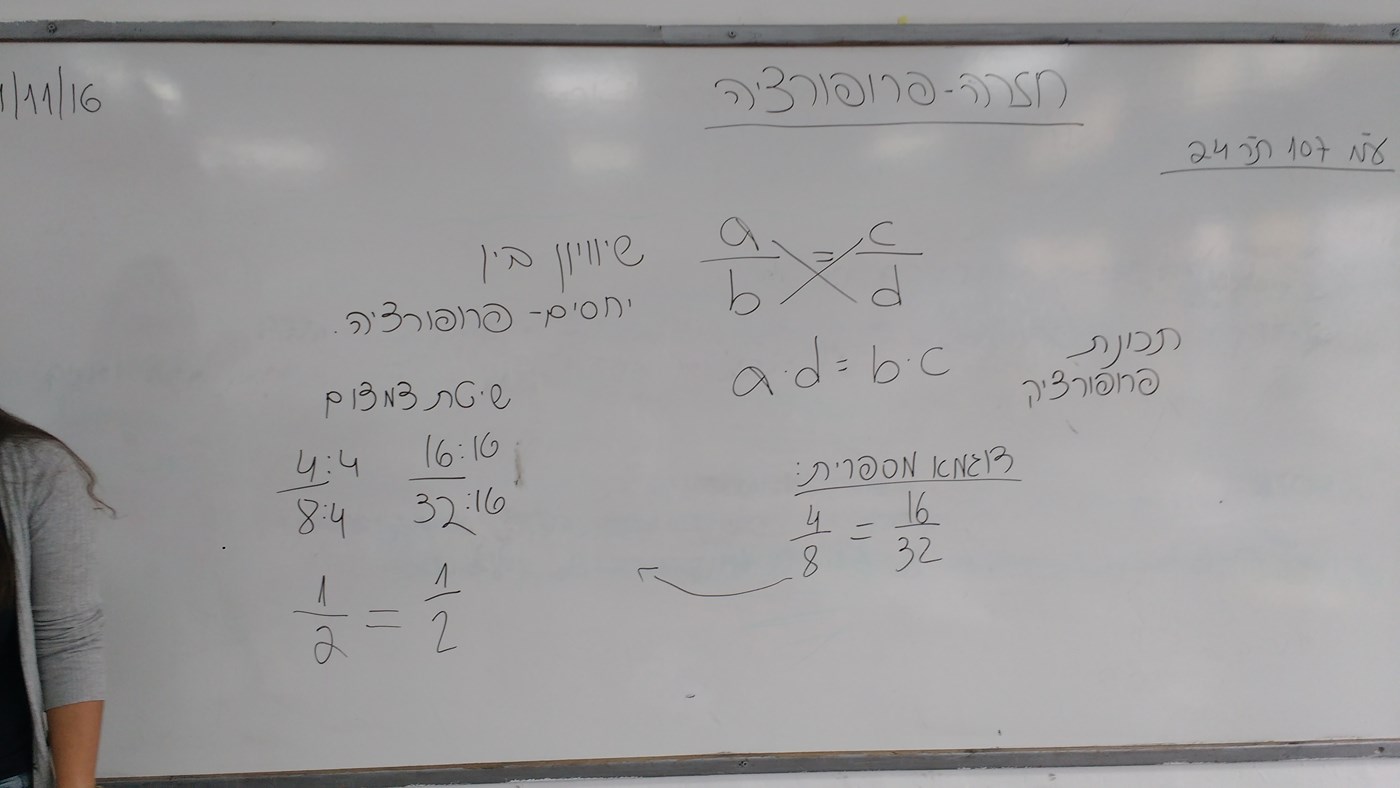 1/11/16
חזרה-פרופורציה
עמ' 107 תר' 24
a/b = c/d
שיוויון בין
יחסים- פרופורציה.
a·d = b·c
תכונת
פרופורציה
שיטת צמצום
4:4/8:4 16:16/32:16
1/2 = 1/2
דוגמא מספרית:
4/8 = 16/32